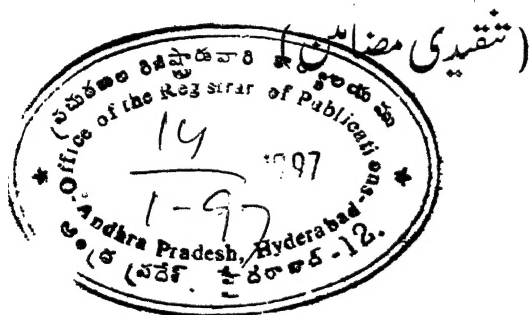 (تنقیدی مضامین)
ప్రచురణల రిజిష్ట్రారు వారి కార్యాలయము
Office of the Registrar of Publications
14
1-97
1997
* Andhra Pradesh, Hyderabad-12. *
ఆంధ్ర ప్రదేశ్. హైదరాబాద్-12.